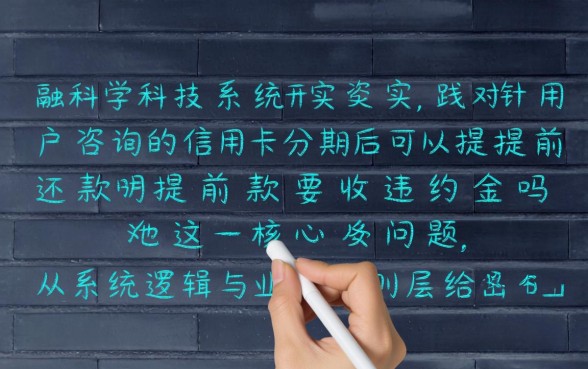 融科学科技系统开实姿实,践对针用
户咨询的信用卡分期后可以提提前
还款明提前款要收违约金吗
这一核心问题,
从系统逻辑与业层给